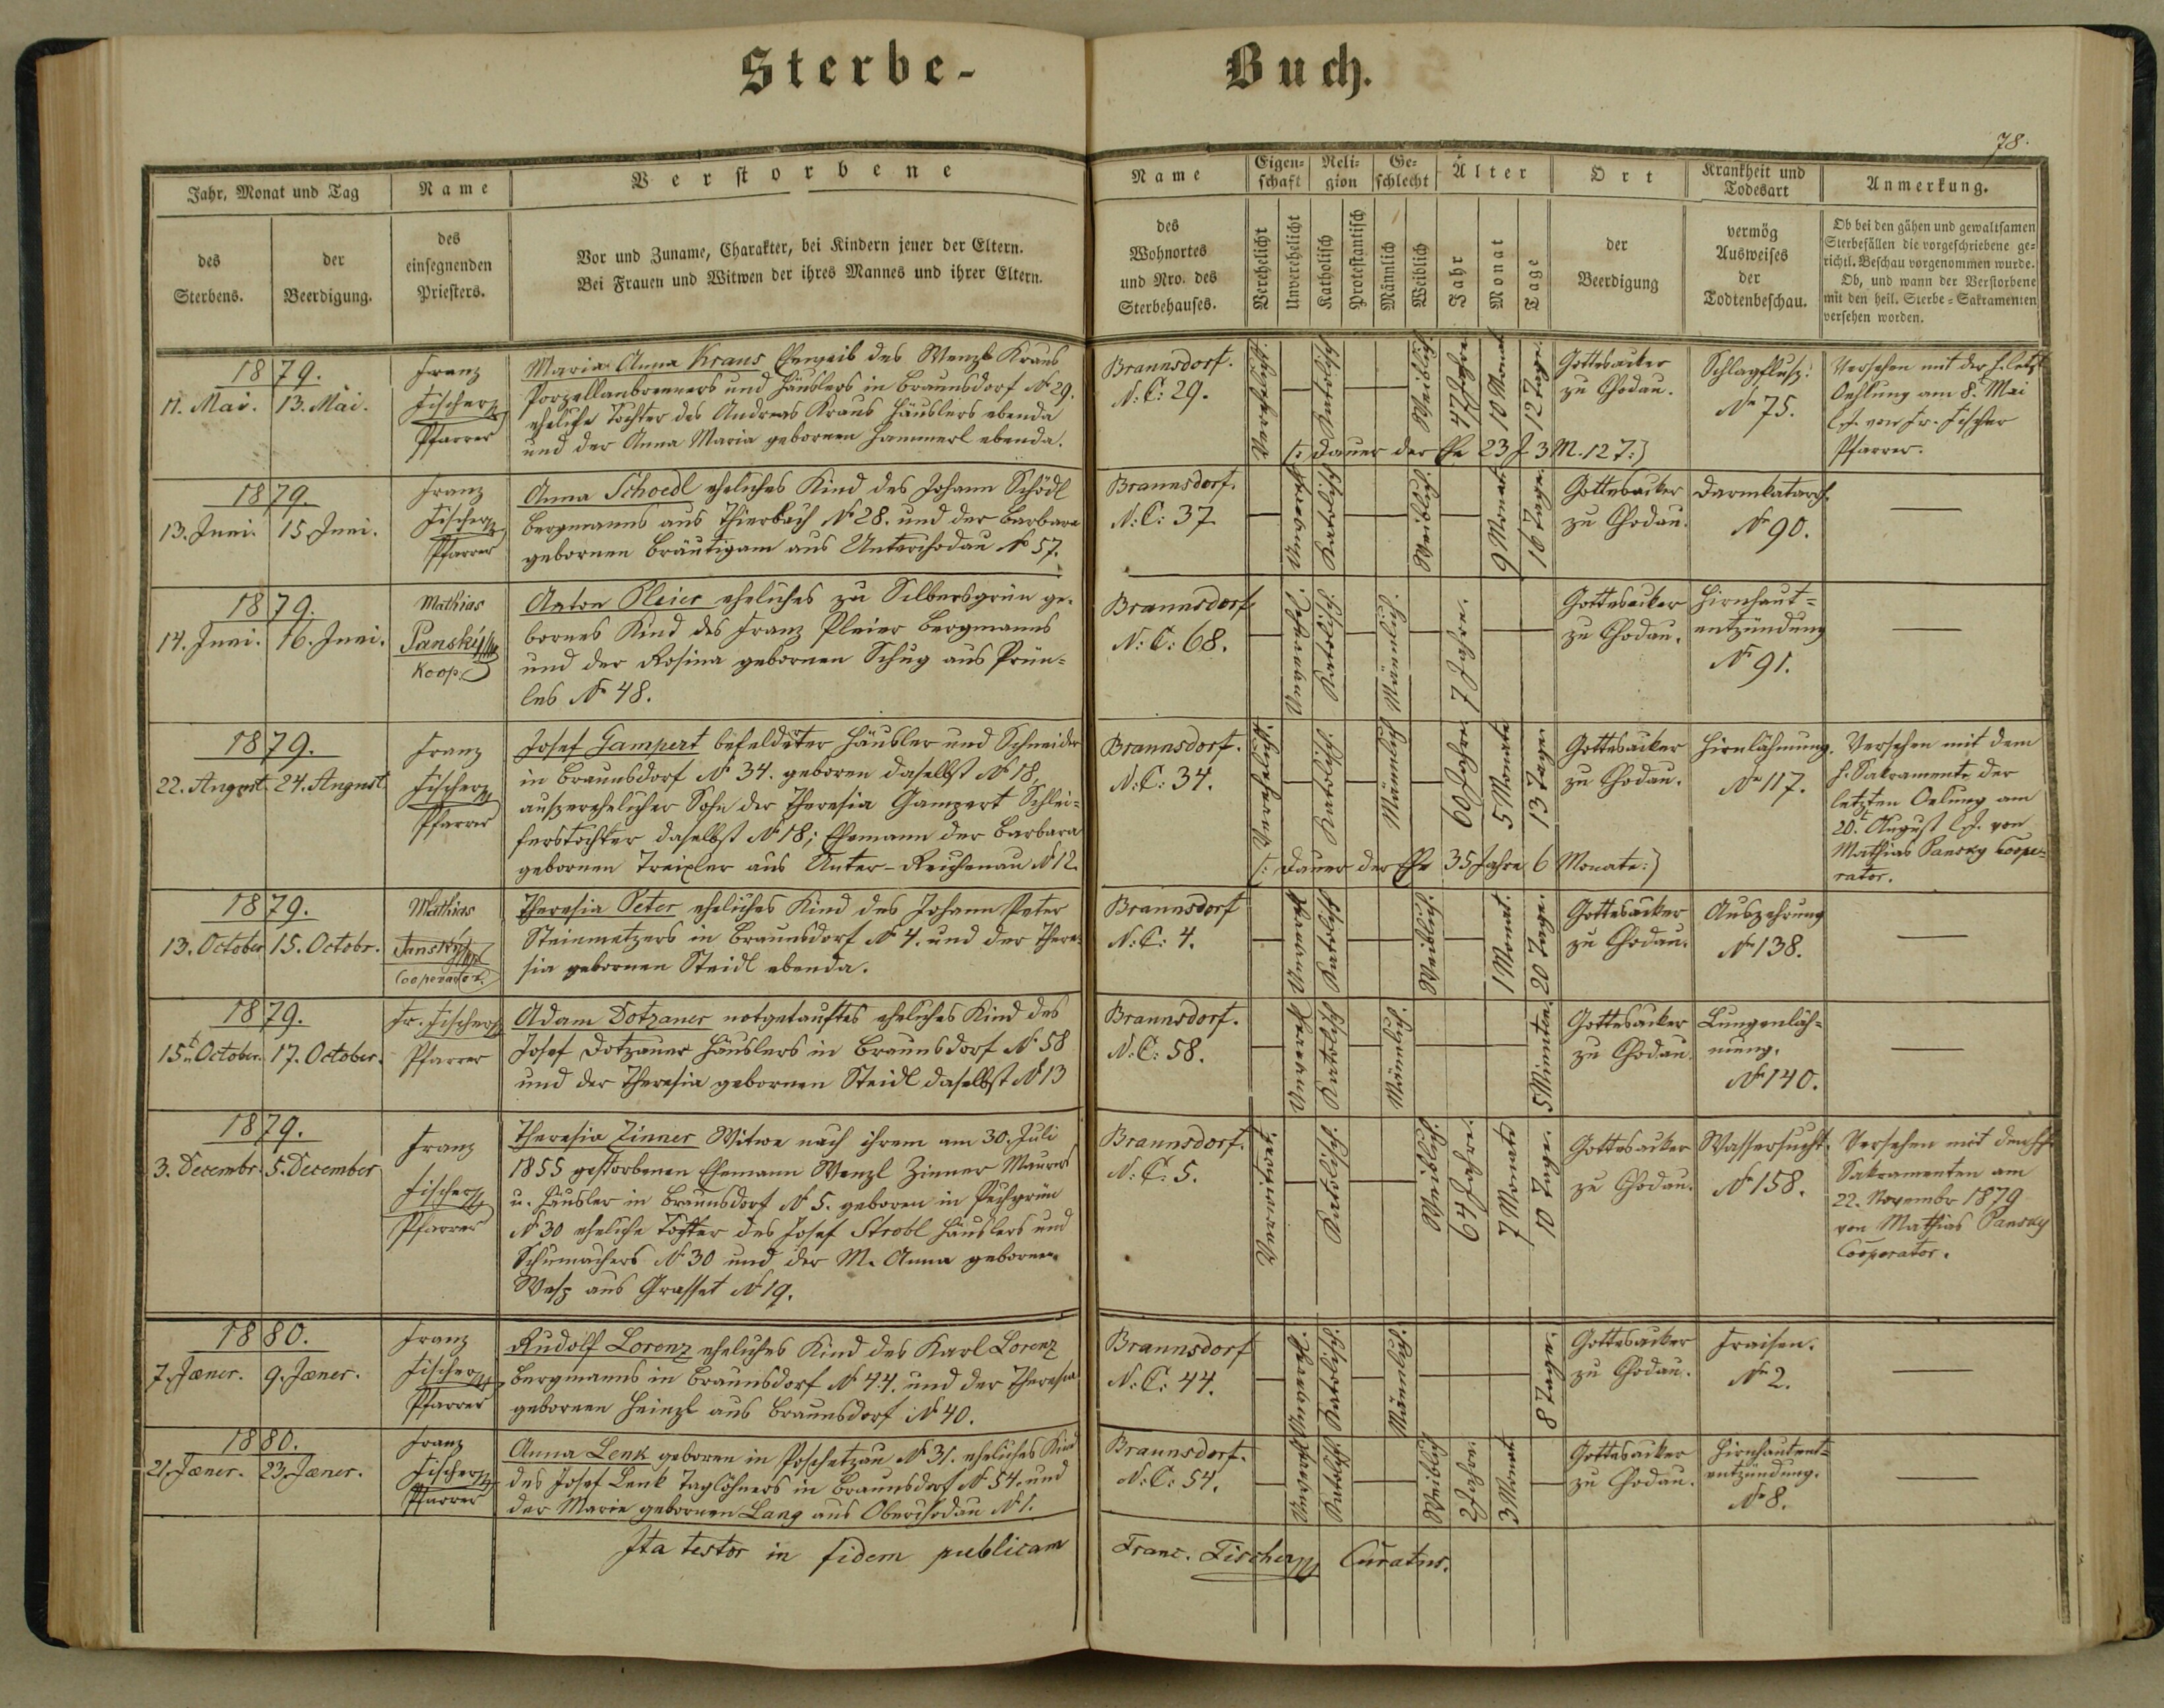 Sterbe-Buch.
78.
Jahr, Monat und Tag
des Sterbens.
der Beerdigung.
Name
des
einsegnenden
Priesters.
Verstorbene
Vor und Zuname, Charakter, bei Kindern jener der Eltern.
Bei Frauen und Witwen der ihres Mannes und ihrer Eltern.
Name
des
Wohnortes
und Nro. des
Sterbehauses.
Eigenschaft
Verehelicht
Unverehelicht
Religion
Katholisch
Protestantisch
Geschlecht
Männlich
Weiblich
Alter
Jahr
Monat
Tage
Ort
der
Beerdigung
Krankheit und
Todesart
vermög
Ausweises
der
Todtenbeschau.
Anmerkung.
Ob bei den gähen und gewaltsamen
Sterbefällen die vorgeschriebene ge-
richtl. Beschau vorgenommen wurde.
Ob, und wann der Verstorbene
mit den heil. Sterbe-Sakramenten
versehen worden.
1879.
11. Mai. 13. Mai.
Franz
Fischer
Pfarrer
Maria Anna Kraus Eheweib des Wenzl Kraus
Porzellanbrenners und Häuslers in Braunsdorf No 29.
eheliche Tochter des Andreas Kraus Häuslers ebenda
und der Anna Maria gebornen Hammerl ebenda.
Braunsdorf.
N: C: 29.
Verehelicht.
Katolisch
Weiblich.
47 Jahre
10 Monat
12 Tage.
(: Dauer der Ehe 23 J. 3 M. 12 T:)
Gottesacker
zu Chodau.
Schlagfluß.
No 75.
Versehen mit der h. letzt.
Oehlung am 8. Mai
l. J. von Fr. Fischer
Pfarrer.
1879.
13. Juni. 15. Juni.
Franz
Fischer
Pfarrer
Anna Schoedl eheliches Kind des Johann Schödl
Bergmanns aus Thierbach No 28. und der Barbara
gebornen Bräutigam aus Unterchodau No 57.
Braunsdorf.
N: C: 37
Unvereh.
Katolisch
Weiblich.
9 Monat.
16 Tage.
Gottesacker
zu Chodau.
Darmkatarrh.
No 90.
1879.
14. Juni. 16. Juni.
Mathias
Panský
Koop.
Anton Pleier eheliches zu Silbersgrün ge-
bornes Kind des Franz Pleier Bergmanns
und der Rosina gebornen Schug aus Prün-
les No 48.
Braunsdorf.
N: C: 68.
Unvereh.
Katolisch.
Männlich.
7 Jahre.
Gottesacker
zu Chodau.
Hirnhaut-
entzündung
No 91.
1879.
22. August 24. August
Franz
Fischer
Pfarrer
Josef Gampert befelderter Häusler und Schneider
in Braunsdorf No 34. geboren daselbst No 18,
außerehelicher Sohn der Theresia Gampert Schlei-
ferstochter daselbst No 18; Ehemann der Barbara
gebornen Treixler aus Unter-Reichenau No 12.
Braunsdorf.
N: C: 34.
Verehelicht.
Katolisch.
Männlich
60 Jahre
5 Monate
13 Tage.
(: Dauer der Ehe 35 Jahre 6 Monate:)
Gottesacker
zu Chodau.
Hirnlähmung.
No 117.
Versehen mit dem
h. Sakramente der
letzten Oelung am
20. August l. J. von
Mathias Pansky Coope-
rator.
1879.
13. October 15. Octobr.
Mathias
Panský
Cooperator.
Theresia Peter eheliches Kind des Johann Peter
Steinmetzers in Braunsdorf No 4. und der There-
sia gebornen Steidl ebenda.
Braunsdorf
N: C: 4.
Unvereh.
Katolisch
Weiblich.
1 Monat.
20 Tage.
Gottesacker
zu Chodau.
Auszehrung
No 138.
1879.
15t October. 17. October.
Fr. Fischer
Pfarrer
Adam Dotzauer notgetauftes eheliches Kind des
Josef Dotzauer Häuslers in Braunsdorf No 58
und der Theresia gebornen Steidl daselbst No 13
Braunsdorf.
N: C: 58.
Unvereh.
Katolisch
Männlich.
5 Minuten.
Gottesacker
zu Chodau
Lungenläh-
mung.
No 140.
1879.
3. Decembr. 5. December
Franz
Fischer
Pfarrer
Theresia Zinner Witwe nach ihrem am 30. Juli
1855 gestorbenen Ehemann Wenzl Zinner Maurers
u. Häusler in Braunsdorf No 5. geboren in Puchgrün
No 30 eheliche Tochter des Josef Strobl Häuslers und
Schumachers No 30 und der M. Anna gebornen
aus Grasset No 19.
Braunsdorf.
N: C: 5.
Verwitwet.
Katolisch.
Weiblich.
64 Jahre.
7 Monate
10 Tage.
Gottesacker
zu Chodau.
Wassersucht.
No 158.
Versehen mit den hh.
Sakramenten am
22. Novembr 1879
von Mathias Pansky
Cooperator.
1880.
7. Jæner. 9. Jæner.
Franz
Fischer
Pfarrer
Rudolf Lorenz eheliches Kind des Karl Lorenz
Bergmanns in Braunsdorf No 44. und der Theresia
gebornen Heinzl aus Braunsdorf No 40.
Braunsdorf
N: C: 44.
Unvereh.
Katolisch.
Männlich.
8 Tage.
Gottesacker
zu Chodau.
Fraisen.
No 2.
1880.
21. Jæner. 23. Jæner.
Franz
Fischer
Pfarrer
Anna Lenk geboren in Poschetzau No 31. eheliches Kind
des Josef Lenk Taglöhners in Braunsdorf No 54. und
der Marie gebornen Lang aus Oberchodau No 1.
Braunsdorf.
N: C: 54.
Unvereh.
Katolisch.
Weiblich
2 Jahre.
3 Monat
Gottesacker
zu Chodau.
Hirnhautent-
entzündung.
No 8.
Ita testor in fidem publicam Franc. Fischer Curatus.